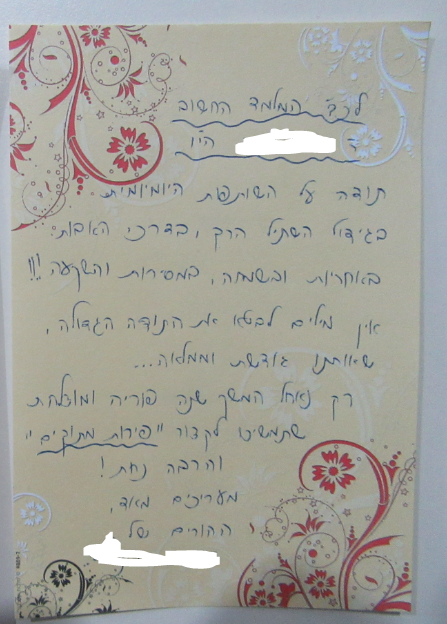 לכב' המלמד החשוב
ר' הי"ו
תודה על השותפות היומיומית
בגידול השתיל הרך, בדרכי האבות
באחריות ובשמחה, במסירות והשקעה!!!
אין מילים לבטא את התודה הגדולה,
שאותנו גודשת וממלאה...
רק נאחל המשך שנה פוריה ומוצלחת
שתמשיכו לקצור "פירות מתוקים"
והרבה נחת!
מעריכים מאד,
ההורים של